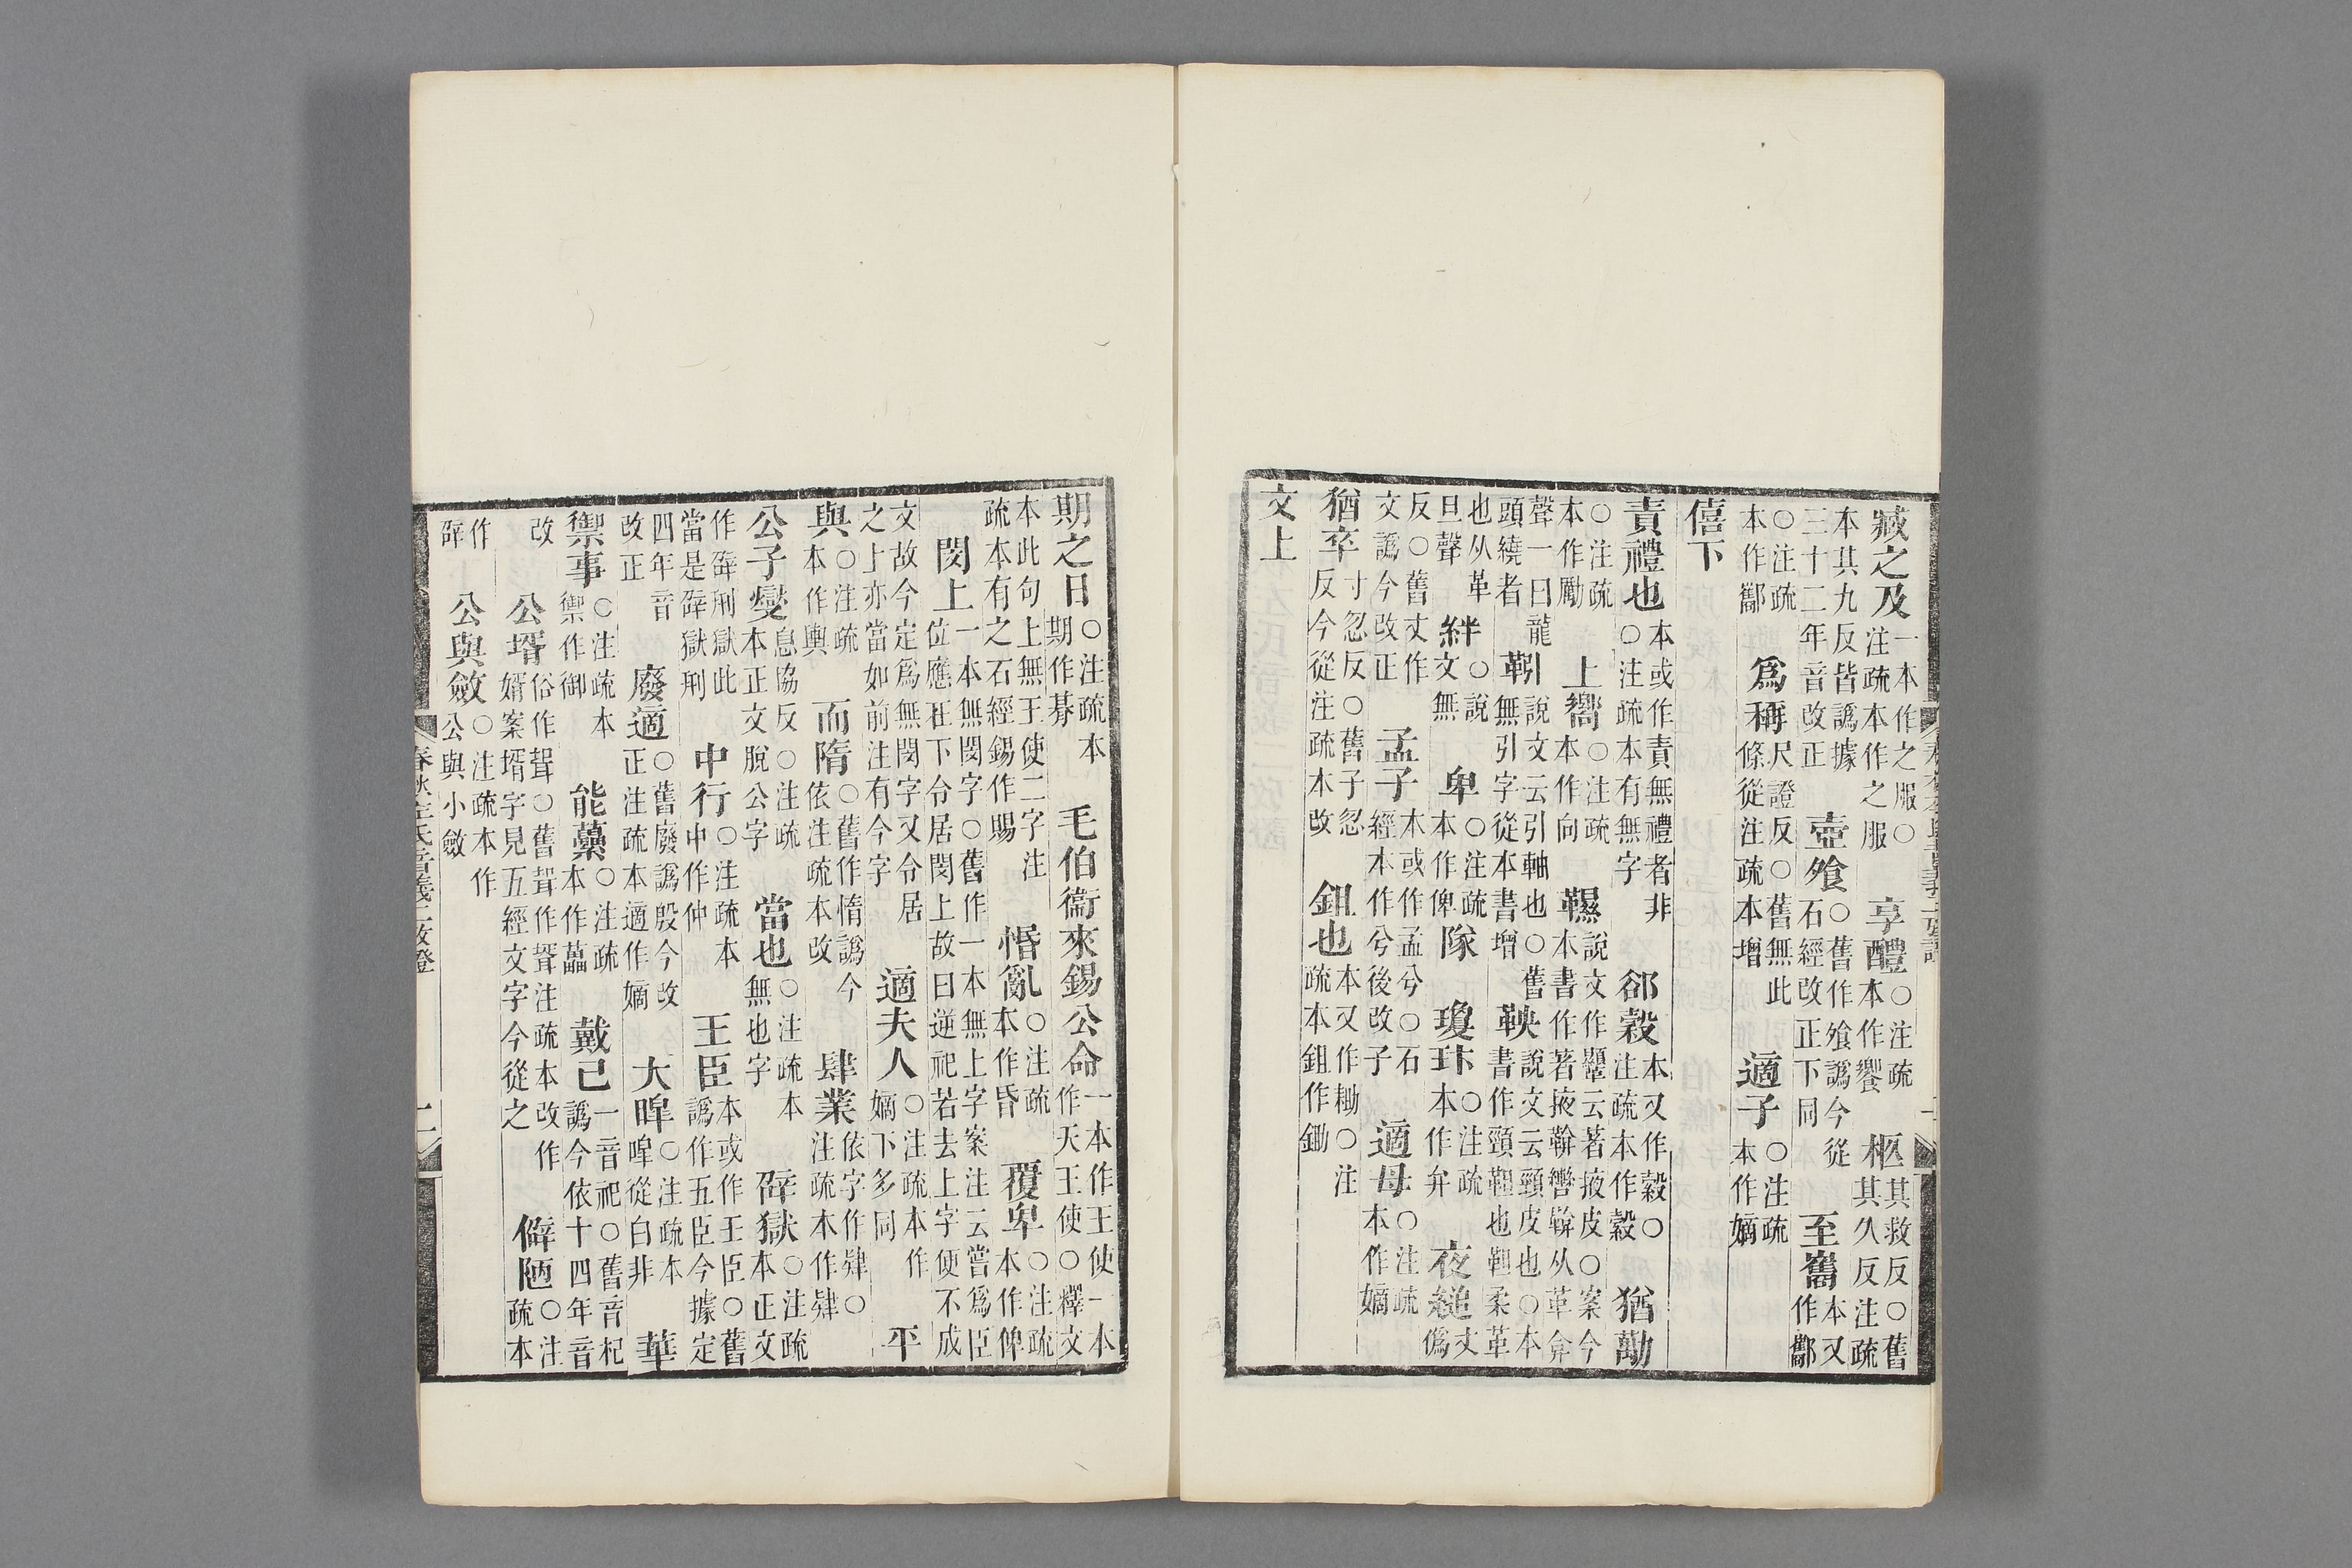 臧之及一本作之服○注疏本作之服 享醴○注疏本作饗 柩其救反○舊其久反注疏
本其九反皆譌據三十二年音改正 壺飧○舊作飧譌今從石經改正下同 至酅本又作酅
○注疏本作酅 爲稱尺證反○舊無此條從注疏本增 適子○注疏本作嫡
僖下
責禮也本或作責無禮者非○注疏本有無字 郤縠本又作穀○注疏本作縠 猶勱
○注疏本作勵 上嚮○注疏本作向 韅說文作䪜云著掖皮○案今本書作著掖鞥轡鞥从革弇
聲一曰龍頭繞者 靷說文云引軸也○舊無引字從本書增 鞅說文云頸皮也○本書作頸靼也靼柔革
也从革旦聲 絆○說文無 卑○注疏本作俾 隊 瓊玤○注疏本作弁 夜縋丈僞
反○舊丈作文譌今改正 孟子本或作孟兮○石經本作兮後改子 適母○注疏本作嫡
猶卒寸忽反○舊子忽反今從注疏本改 鉏也本又作耡○注疏本鉏作鋤
文上
期之日○注疏本期作朞 毛伯衞來錫公命一本作王使一本作天王使○釋文
本此句上無王使二字注疏本有之石經錫作賜 惛亂○注疏本作昏 覆卑○注疏本作俾
閔上一本無閔字○舊作一本無上字案注云嘗爲臣位應在下令居閔上故曰逆祀若去上字便不成
文故今定爲無閔字又令居之上亦當如前注有今字 適夫人○注疏本作嫡下多同 平
與○注疏本作輿 而隋○舊作惰譌今依注疏本改 肆業依字作肄○注疏本作肄
公子燮息協反○注疏本正文脫公字 當也○注疏本無也字 辟獄○注疏本正文
作辟刑獄此當是辟獄刑 中行○注疏本中作仲 王臣本或作王臣○舊譌作五臣今據定
四年音改正 廢適○舊廢譌殷今改正注疏本適作嫡 大皥○注疏本皥從白非 華
禦事○注疏本禦作御 能虆○注疏本作藟 戴己一音祀○舊音杞譌今依十四年音
改 公壻俗作聟○舊聟作聓注疏本改作婿案壻字見五經文字今從之 僻陋○注疏本
作辟 公與斂○注疏本作公與小斂
春秋左氏音義二攷證